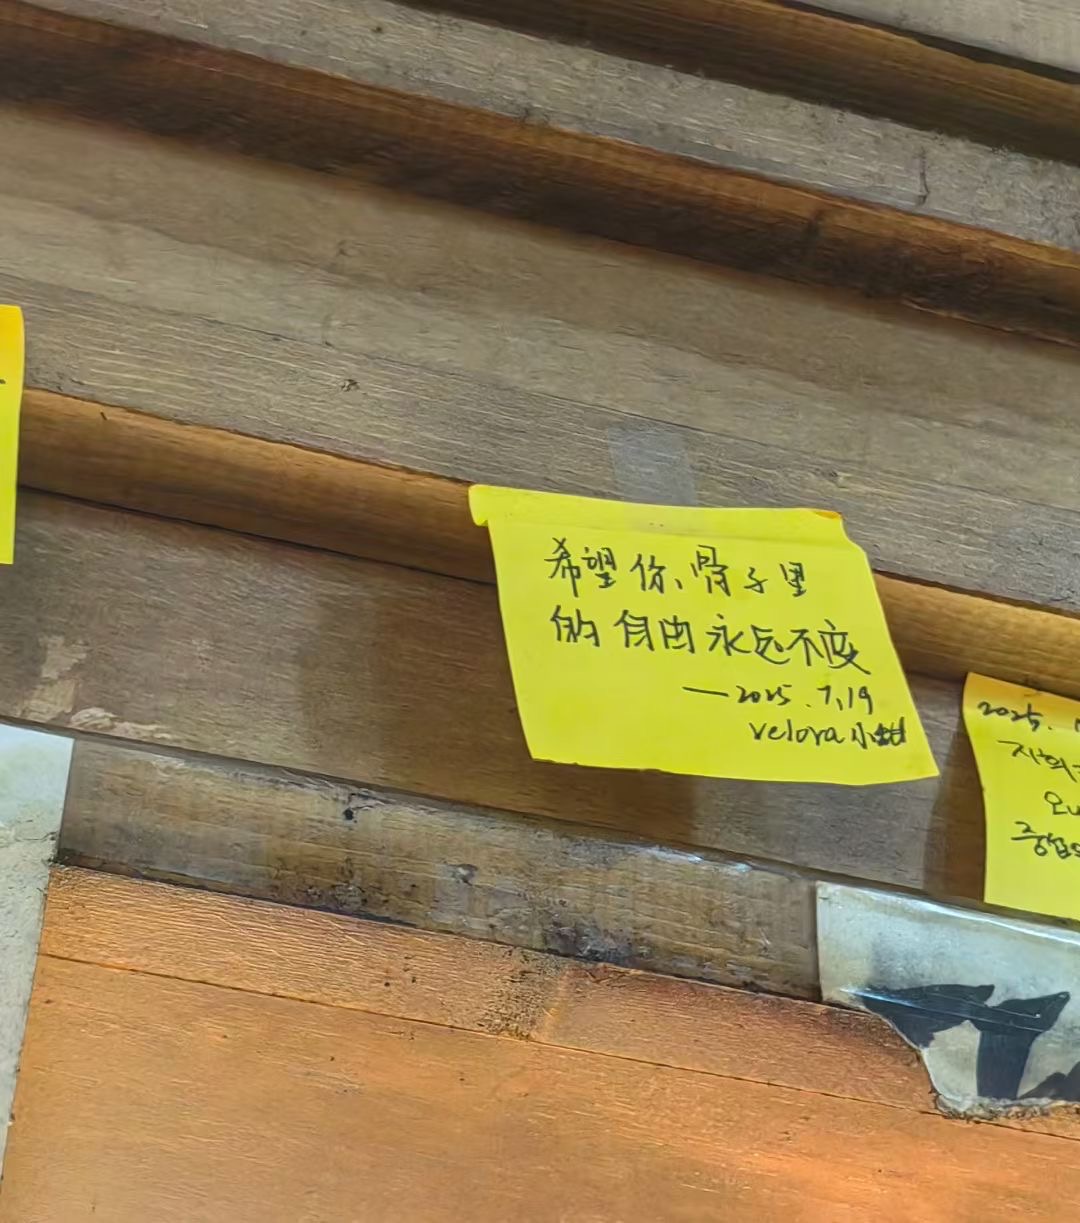 希望你、骨子里
的自由永远不变
—2025.7.19
velora小
2025.
지희
오
중